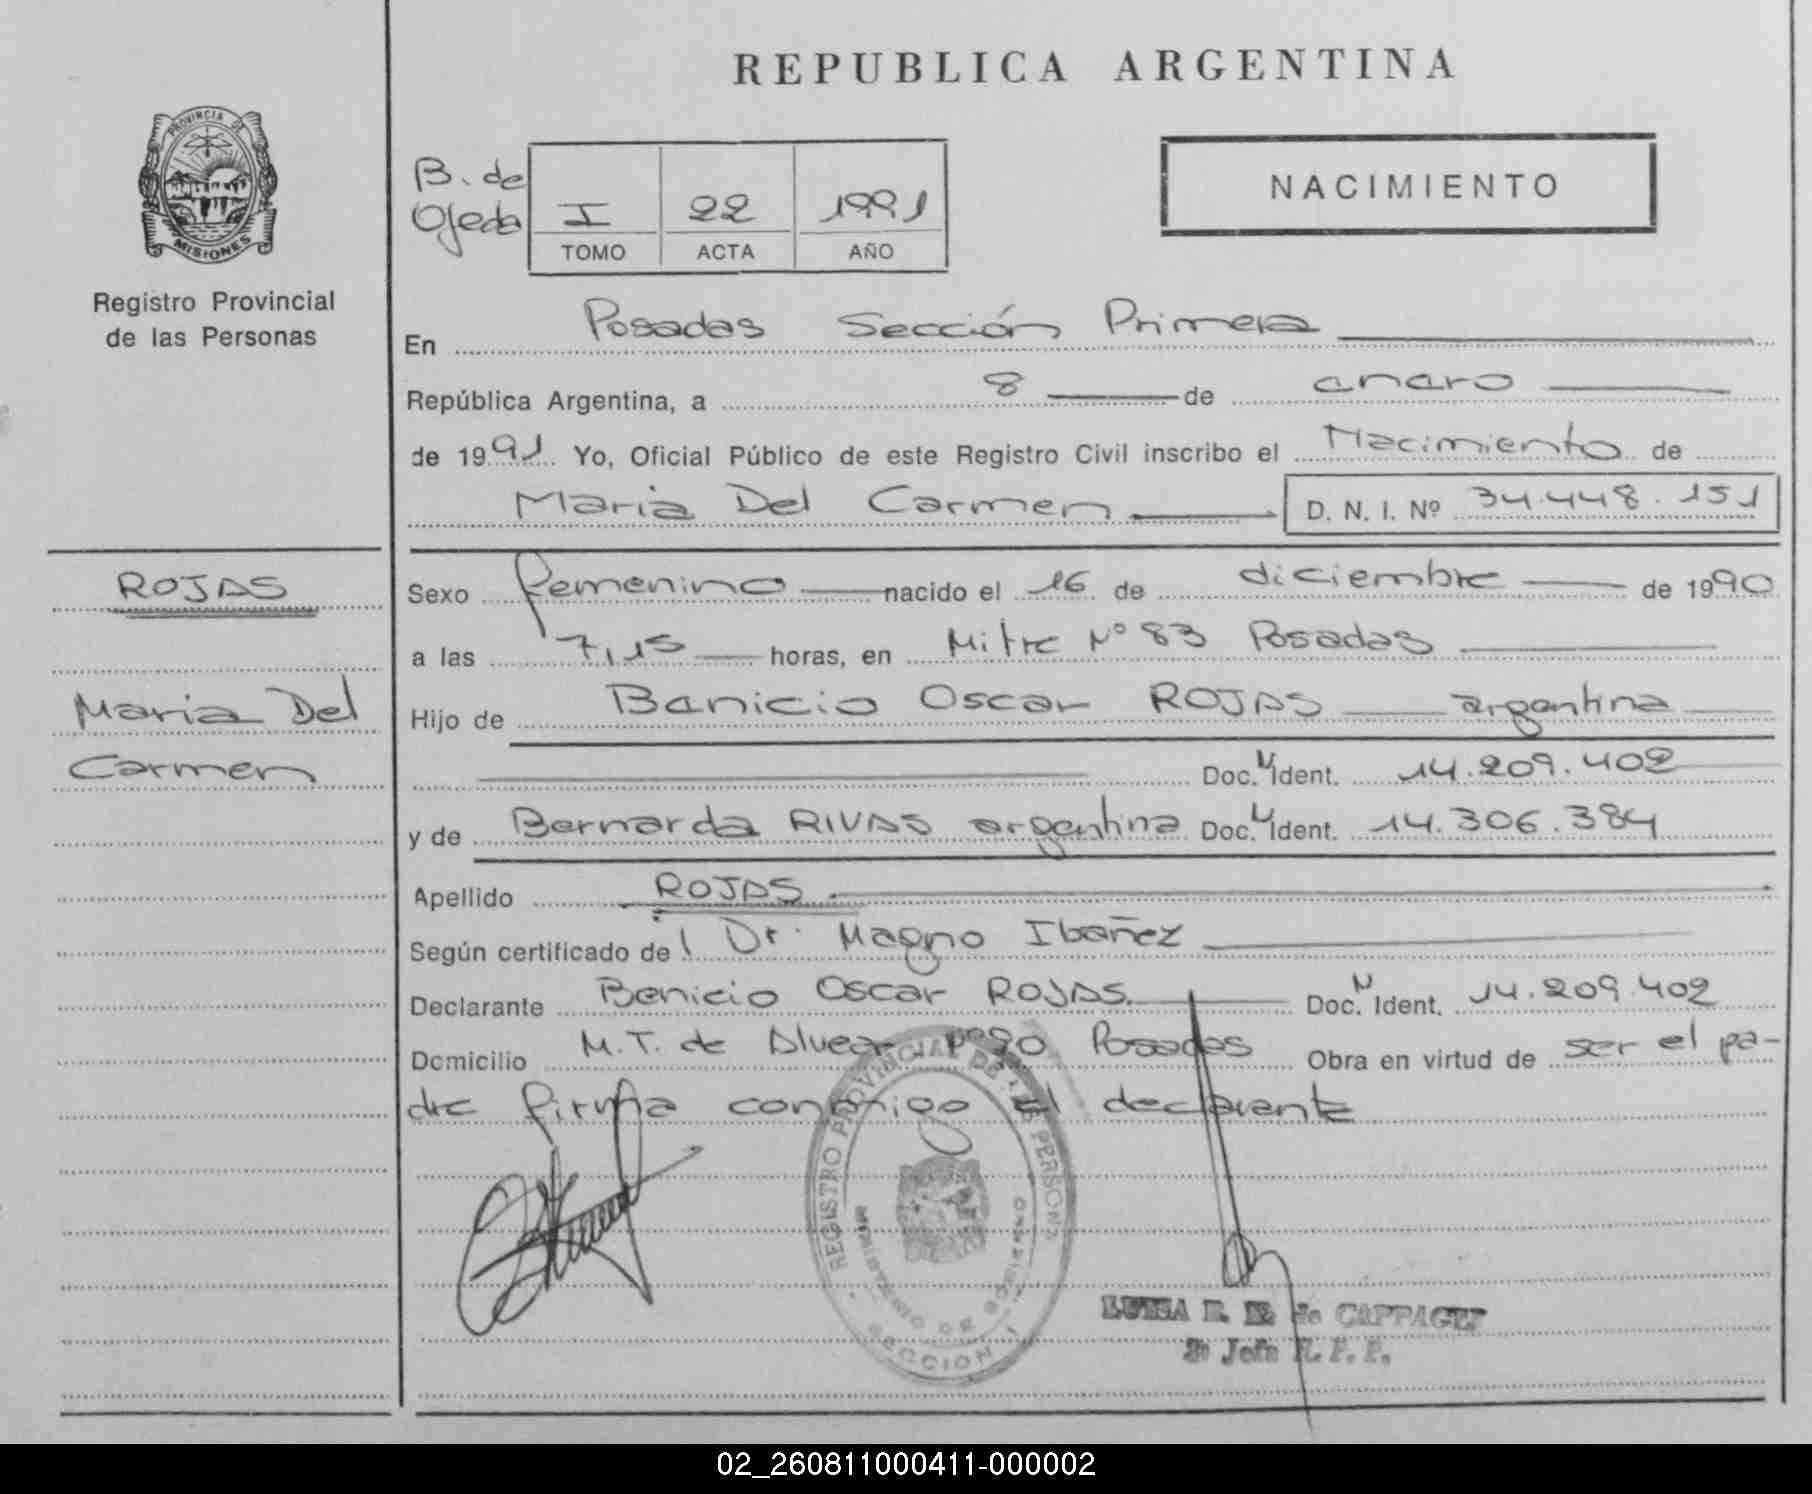 REPUBLICA ARGENTINA
PROVINCIA DE
MISIONES
Registro Provincial
de las Personas
B. de
Ojeda
I 22 1991
TOMO ACTA AÑO
NACIMIENTO
En Posadas Sección Primera
República Argentina, a 8 de enero
de 1991 Yo, Oficial Público de este Registro Civil inscribo el Nacimiento de
Maria Del Carmen D. N. I. Nº 34.448.151
ROJAS
Maria Del
Carmen
Sexo femenino nacido el 16 de diciembre de 1990
a las 7,15 horas, en Mitre Nº 83 Posadas
Hijo de Benicio Oscar ROJAS argentina
Doc. N Ident. 14.209.402
y de Bernarda RIVAS argentina Doc. U Ident. 14.306.384
Apellido ROJAS
Según certificado de l Dr. Magno Ibañez
Declarante Benicio Oscar ROJAS Doc. N Ident. 14.209.402
Domicilio M.T. de Alvear Posadas Obra en virtud de ser el pa-
dre firma conmigo el declarante
REGISTRO PROVINCIAL DE LAS PERSONAS
MINISTERIO DE GOBIERNO
SECCION 1
LUISA de
Jefe R. P. P.
02_260811000411-000002